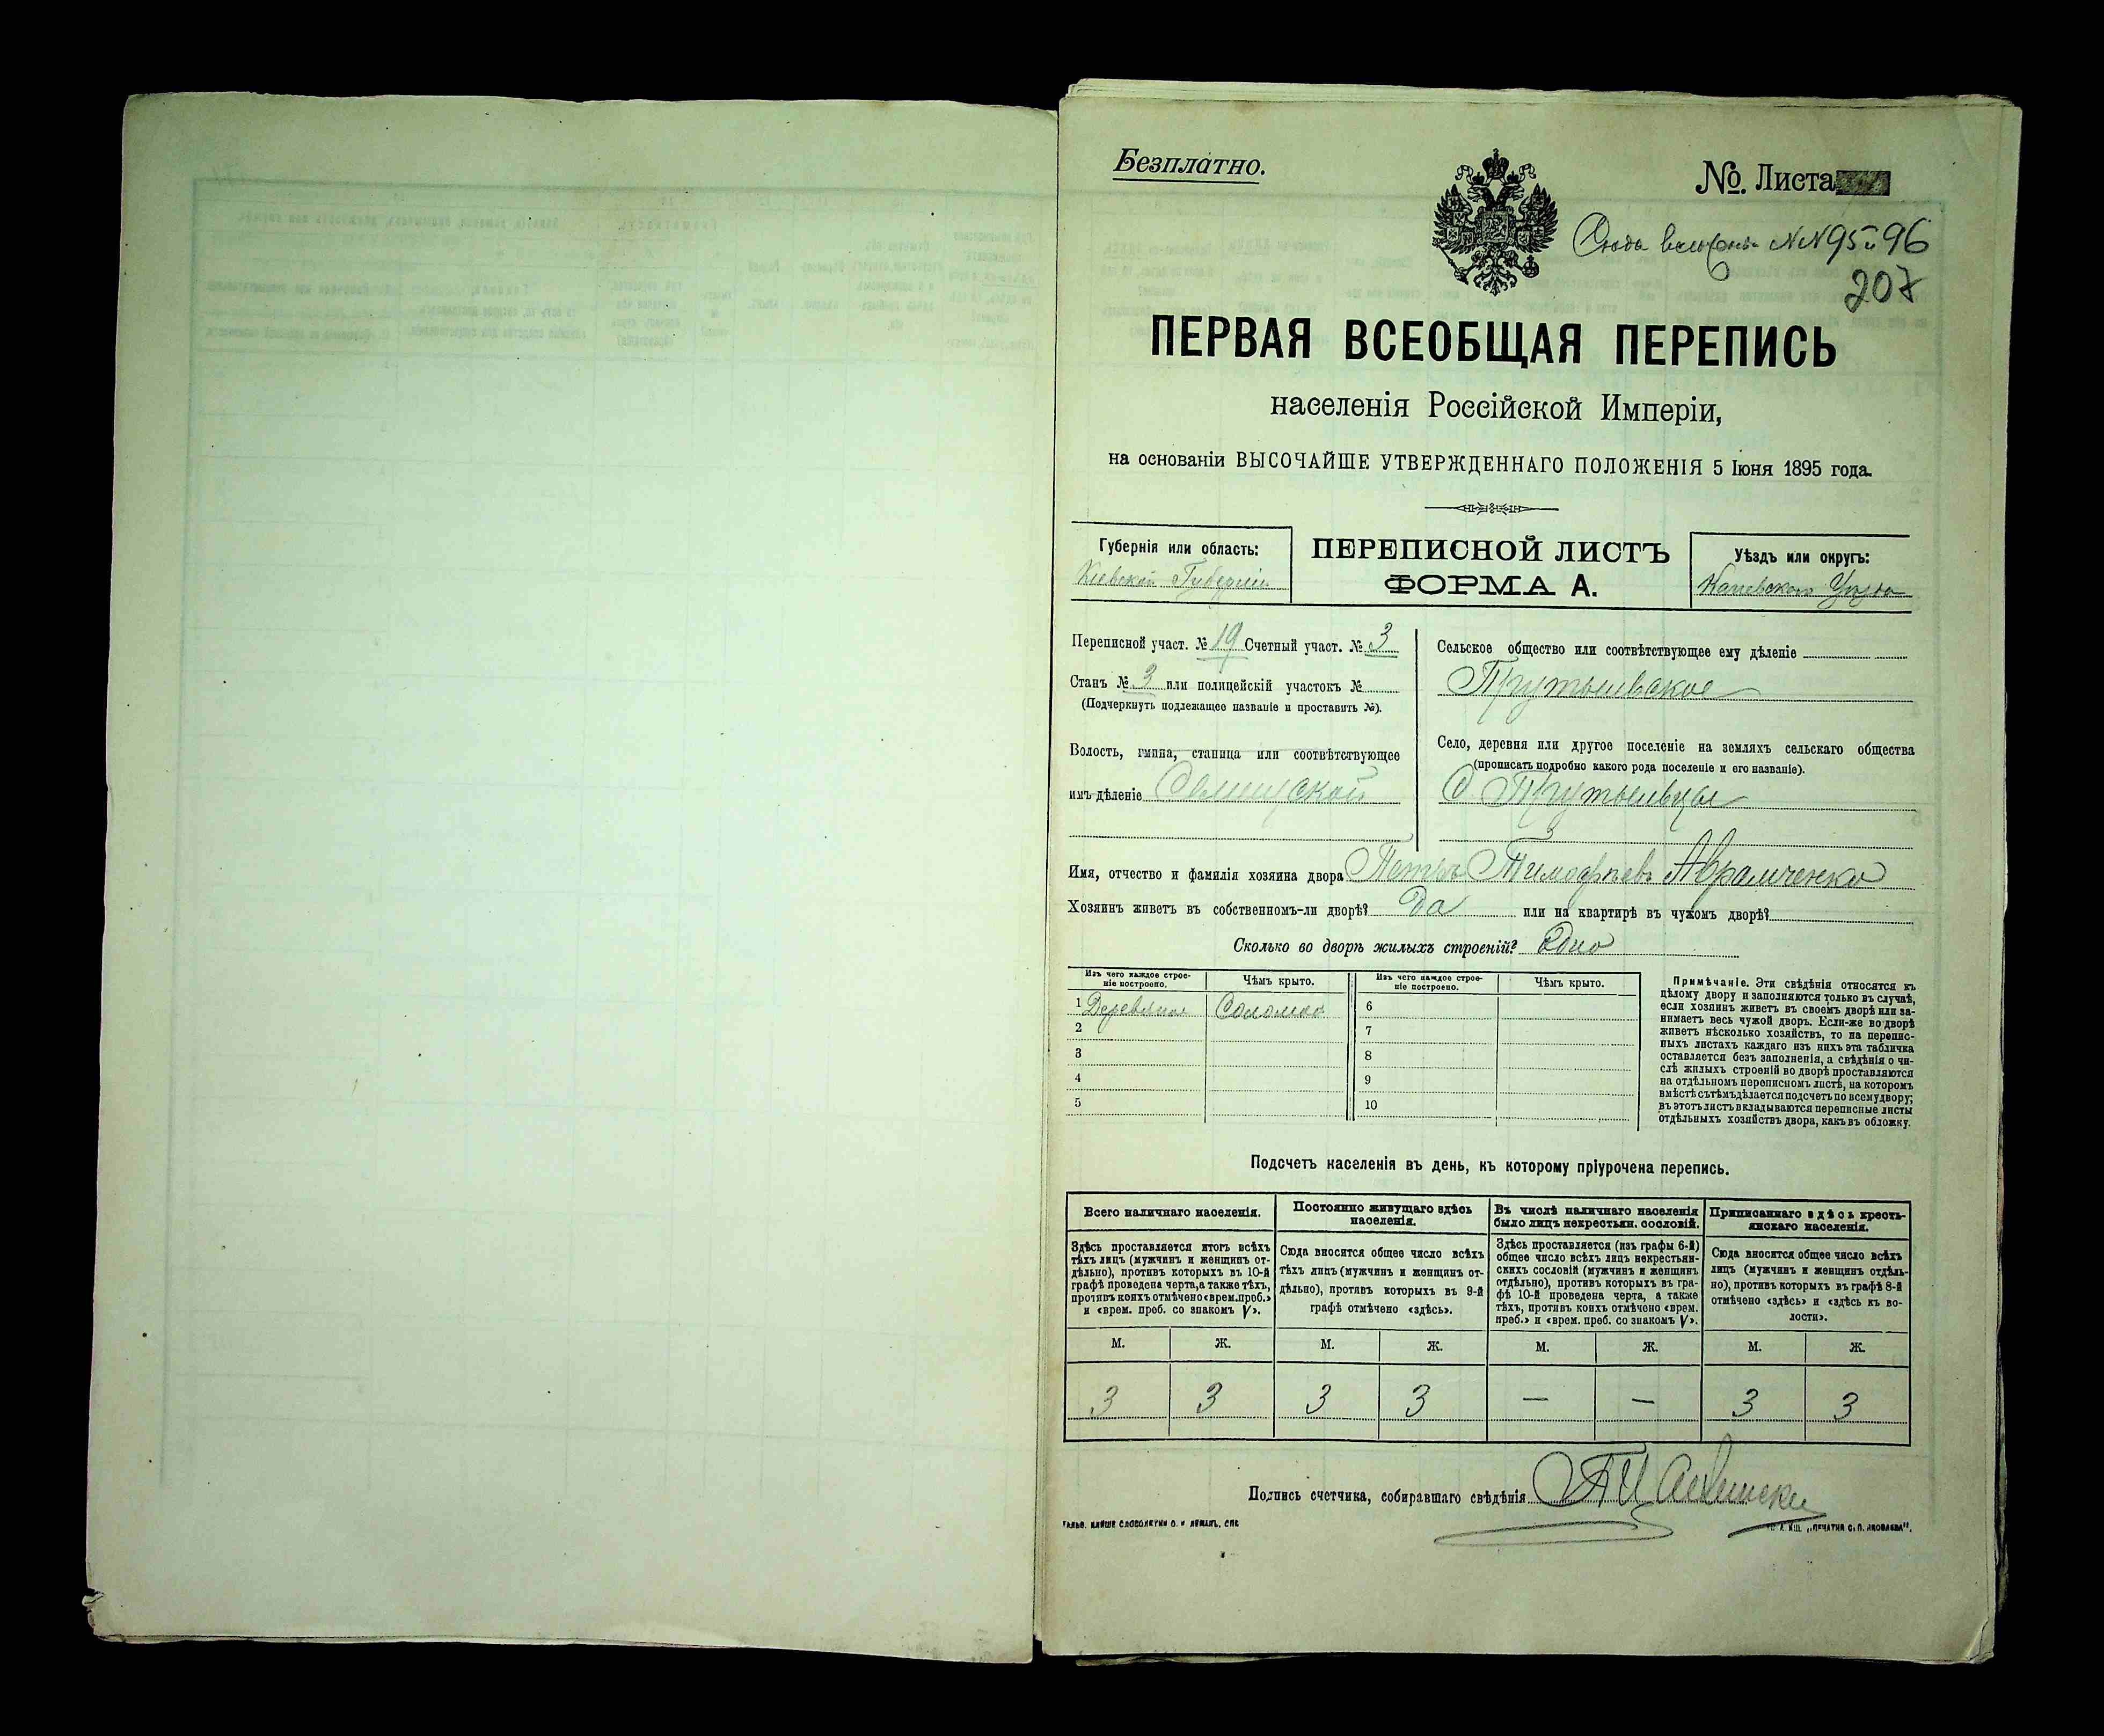 Безплатно.
№. Листа
Сюда вложены №№ 95 и 96
207
ПЕРВАЯ ВСЕОБЩАЯ ПЕРЕПИСЬ
населенія Россійской Имперіи,
на основаніи ВЫСОЧАЙШЕ УТВЕРЖДЕННАГО ПОЛОЖЕНІЯ 5 Іюня 1895 года.
Губернія или область:
Кіевской Губерніи
ПЕРЕПИСНОЙ ЛИСТЪ
ФОРМА А.
Уѣздъ или округъ:
Каневскаго Уѣзда
Переписной участ. № 19 Счетный участ. № 3
Станъ № 3 или полицейскій участокъ №
(Подчеркнуть подлежащее названіе и проставить №).
Волость, гмина, станица или соотвѣтствующее
имъ дѣленіе
Сельское общество или соотвѣтствующее ему дѣленіе
Прутыльвское
Село, деревня или другое поселеніе на земляхъ сельскаго общества
(прописать подробно какого рода поселеніе и его названіе).
С. Прутыльвцы
Имя, отчество и фамилія хозяина двора Петръ Тимофѣевъ Авраменко
Хозяинъ живетъ въ собственномъ-ли дворѣ? Да или на квартирѣ въ чужомъ дворѣ?
Сколько во дворѣ жилыхъ строеній? Одно
Изъ чего каждое строе-
ніе построено.
Чѣмъ крыто.
Изъ чего каждое строе-
ніе построено.
Чѣмъ крыто.
1 Деревяное Соломою 6
2 7
3 8
4 9
5 10
Примѣчаніе. Эти свѣдѣнія относятся къ
цѣлому двору и заполняются только въ случаѣ,
если хозяин живетъ въ своемъ дворѣ или за-
нимаетъ весь чужой дворъ. Если-же во дворѣ
живетъ нѣсколько хозяйствъ, то на перепис-
ныхъ листахъ каждаго изъ нихъ эта табличка
оставляется безъ заполненія, а свѣдѣнія о чи-
слѣ жилыхъ строеній во дворѣ проставляются
на отдѣльномъ переписномъ листѣ, на которомъ
вмѣстѣ съ тѣмъ дѣлается подсчетъ по всему двору;
въ этотъ листъ вкладываются переписные листы
отдѣльныхъ хозяйствъ двора, какъ въ обложку.
Подсчетъ населенія въ день, къ которому пріурочена перепись.
Всего наличнаго населенія.
Здѣсь проставляется итогъ всѣхъ
тѣхъ лицъ (мужчинъ и женщинъ от-
дѣльно), противъ которыхъ въ 10-й
графѣ проведена черта, а также тѣхъ,
противъ коихъ отмѣчено «врем. преб.»
и «врем. преб. со знакомъ V».
Постоянно живущаго здѣсь
населенія.
Сюда вносится общее число всѣхъ
тѣхъ лицъ (мужчинъ и женщинъ от-
дѣльно), противъ которыхъ въ 9-й
графѣ отмѣчено «здѣсь».
Въ числѣ наличнаго населенія
было лицъ некрестьян. сословій.
Здѣсь проставляется (изъ графы 6-й)
общее число всѣхъ лицъ некрестьян-
скихъ сословій (мужчинъ и женщинъ
отдѣльно), противъ которыхъ въ гра-
фѣ 10-й проведена черта, а также
тѣхъ, противъ коихъ отмѣчено «врем.
преб.» и «врем. преб. со знакомъ V».
Приписаннаго здѣсь кресть-
янскаго населенія.
Сюда вносится общее число всѣхъ
лицъ (мужчинъ и женщинъ отдѣль-
но), противъ которыхъ въ графѣ 8-й
отмѣчено «здѣсь» и «здѣсь къ во-
лости».
М. Ж. М. Ж. М. Ж. М. Ж.
3 3 3 3 — — 3 3
Подпись счетчика, собиравшаго свѣдѣнія